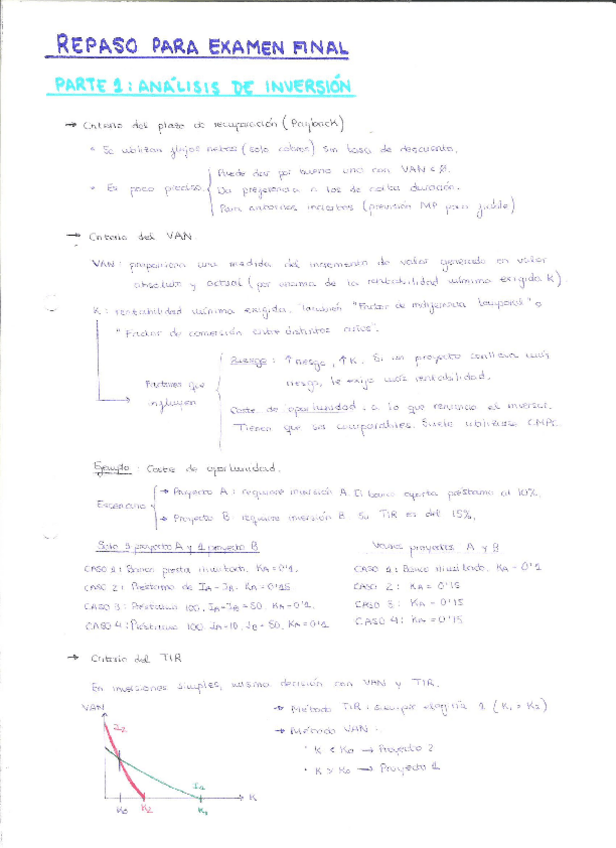 REPASO PARA EXAMEN FINAL
PARTE 1: ANÁLISIS DE INVERSIÓN
→ Criterio del plazo de recuperación (Payback)
• Se utilizan flujos netos (solo cobros) sin tasa de descuento.
• Es poco preciso
Puede dar por bueno uno con VAN < 0.
Da preferencia a los de corta duración.
Para entornos inciertos (previsión MP para
→ Criterio del VAN
VAN: proporciona una medida del incremento de valor generado en valor
absoluto y actual (por encima de la rentabilidad mínima exigida K).
K: rentabilidad mínima exigida. También "Factor de indiferencia temporal" o
"Factor de conversión entre distintos
Factores que
influyen
Riesgo: ↑ riesgo, ↑ K. Si un proyecto conlleva más
riesgo, le exijo más rentabilidad.
Coste de oportunidad: a lo que renuncia el inversor.
Tienen que ser comparables. Suele utilizarse
Ejemplo: Coste de oportunidad.
Escenario
→ Proyecto A: requiere inversión A. El banco oferta préstamo al 10%.
→ Proyecto B: requiere inversión B. Su TIR es del 15%.
Solo 1 proyecto A y 1 proyecto B
CASO 1: Banco presta ilimitado. KA = 0'1.
CASO 2: Préstamo de IA-IB. KA = 0'15
CASO 3: Préstamo 100, IA=IB=50. KA = 0'1.
CASO 4: Préstamo 100 IA=10, IB=50. KA = 0'1
Varios proyectos A y B
CASO 1: Banco ilimitado. KA = 0'1
CASO 2: KA = 0'15
CASO 3: KA = 0'15
CASO 4: KA = 0'15
→ Criterio del TIR
En inversiones simples, misma decisión con VAN y TIR.
VAN
I2
I1
K0
K2
K1
K
→ Método TIR: siempre elegiría 1 (K1 > K2)
→ Método VAN:
• K < K0 → Proyecto 2
• K > K0 → Proyecto 1